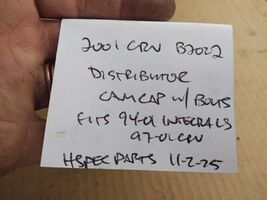 2001 CRV B20Z2
DISTRIBUTOR
CAM CAP w/ BOLTS
FITS 94-01 INTEGRA LS
97-01 CRV
HSPEC PARTS 11-2-25